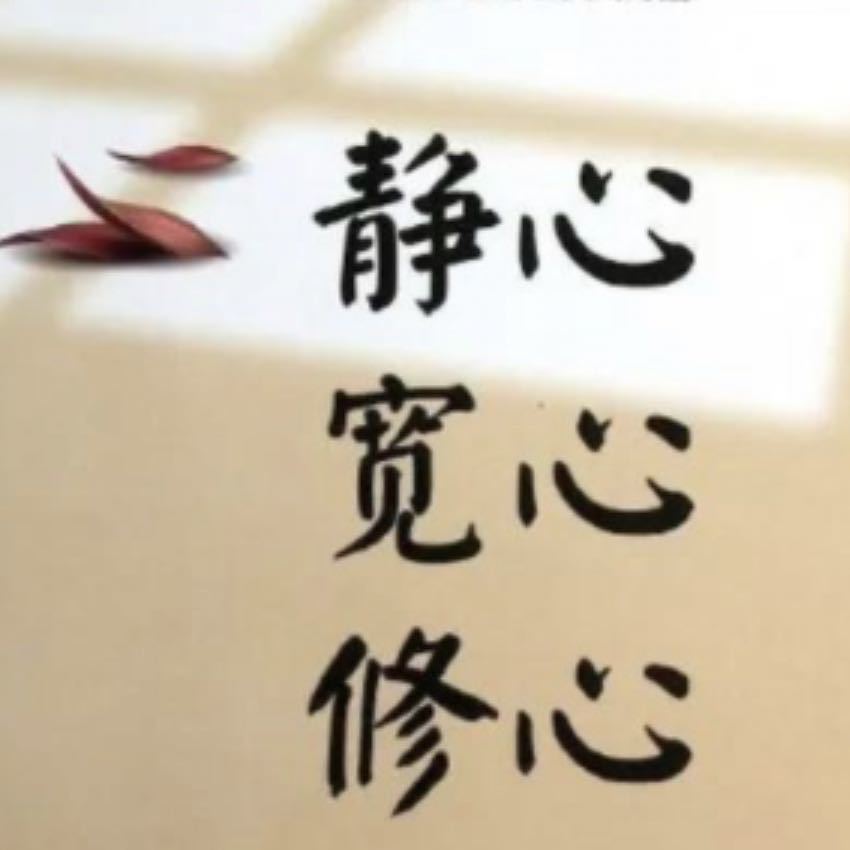 静心
宽心
修心